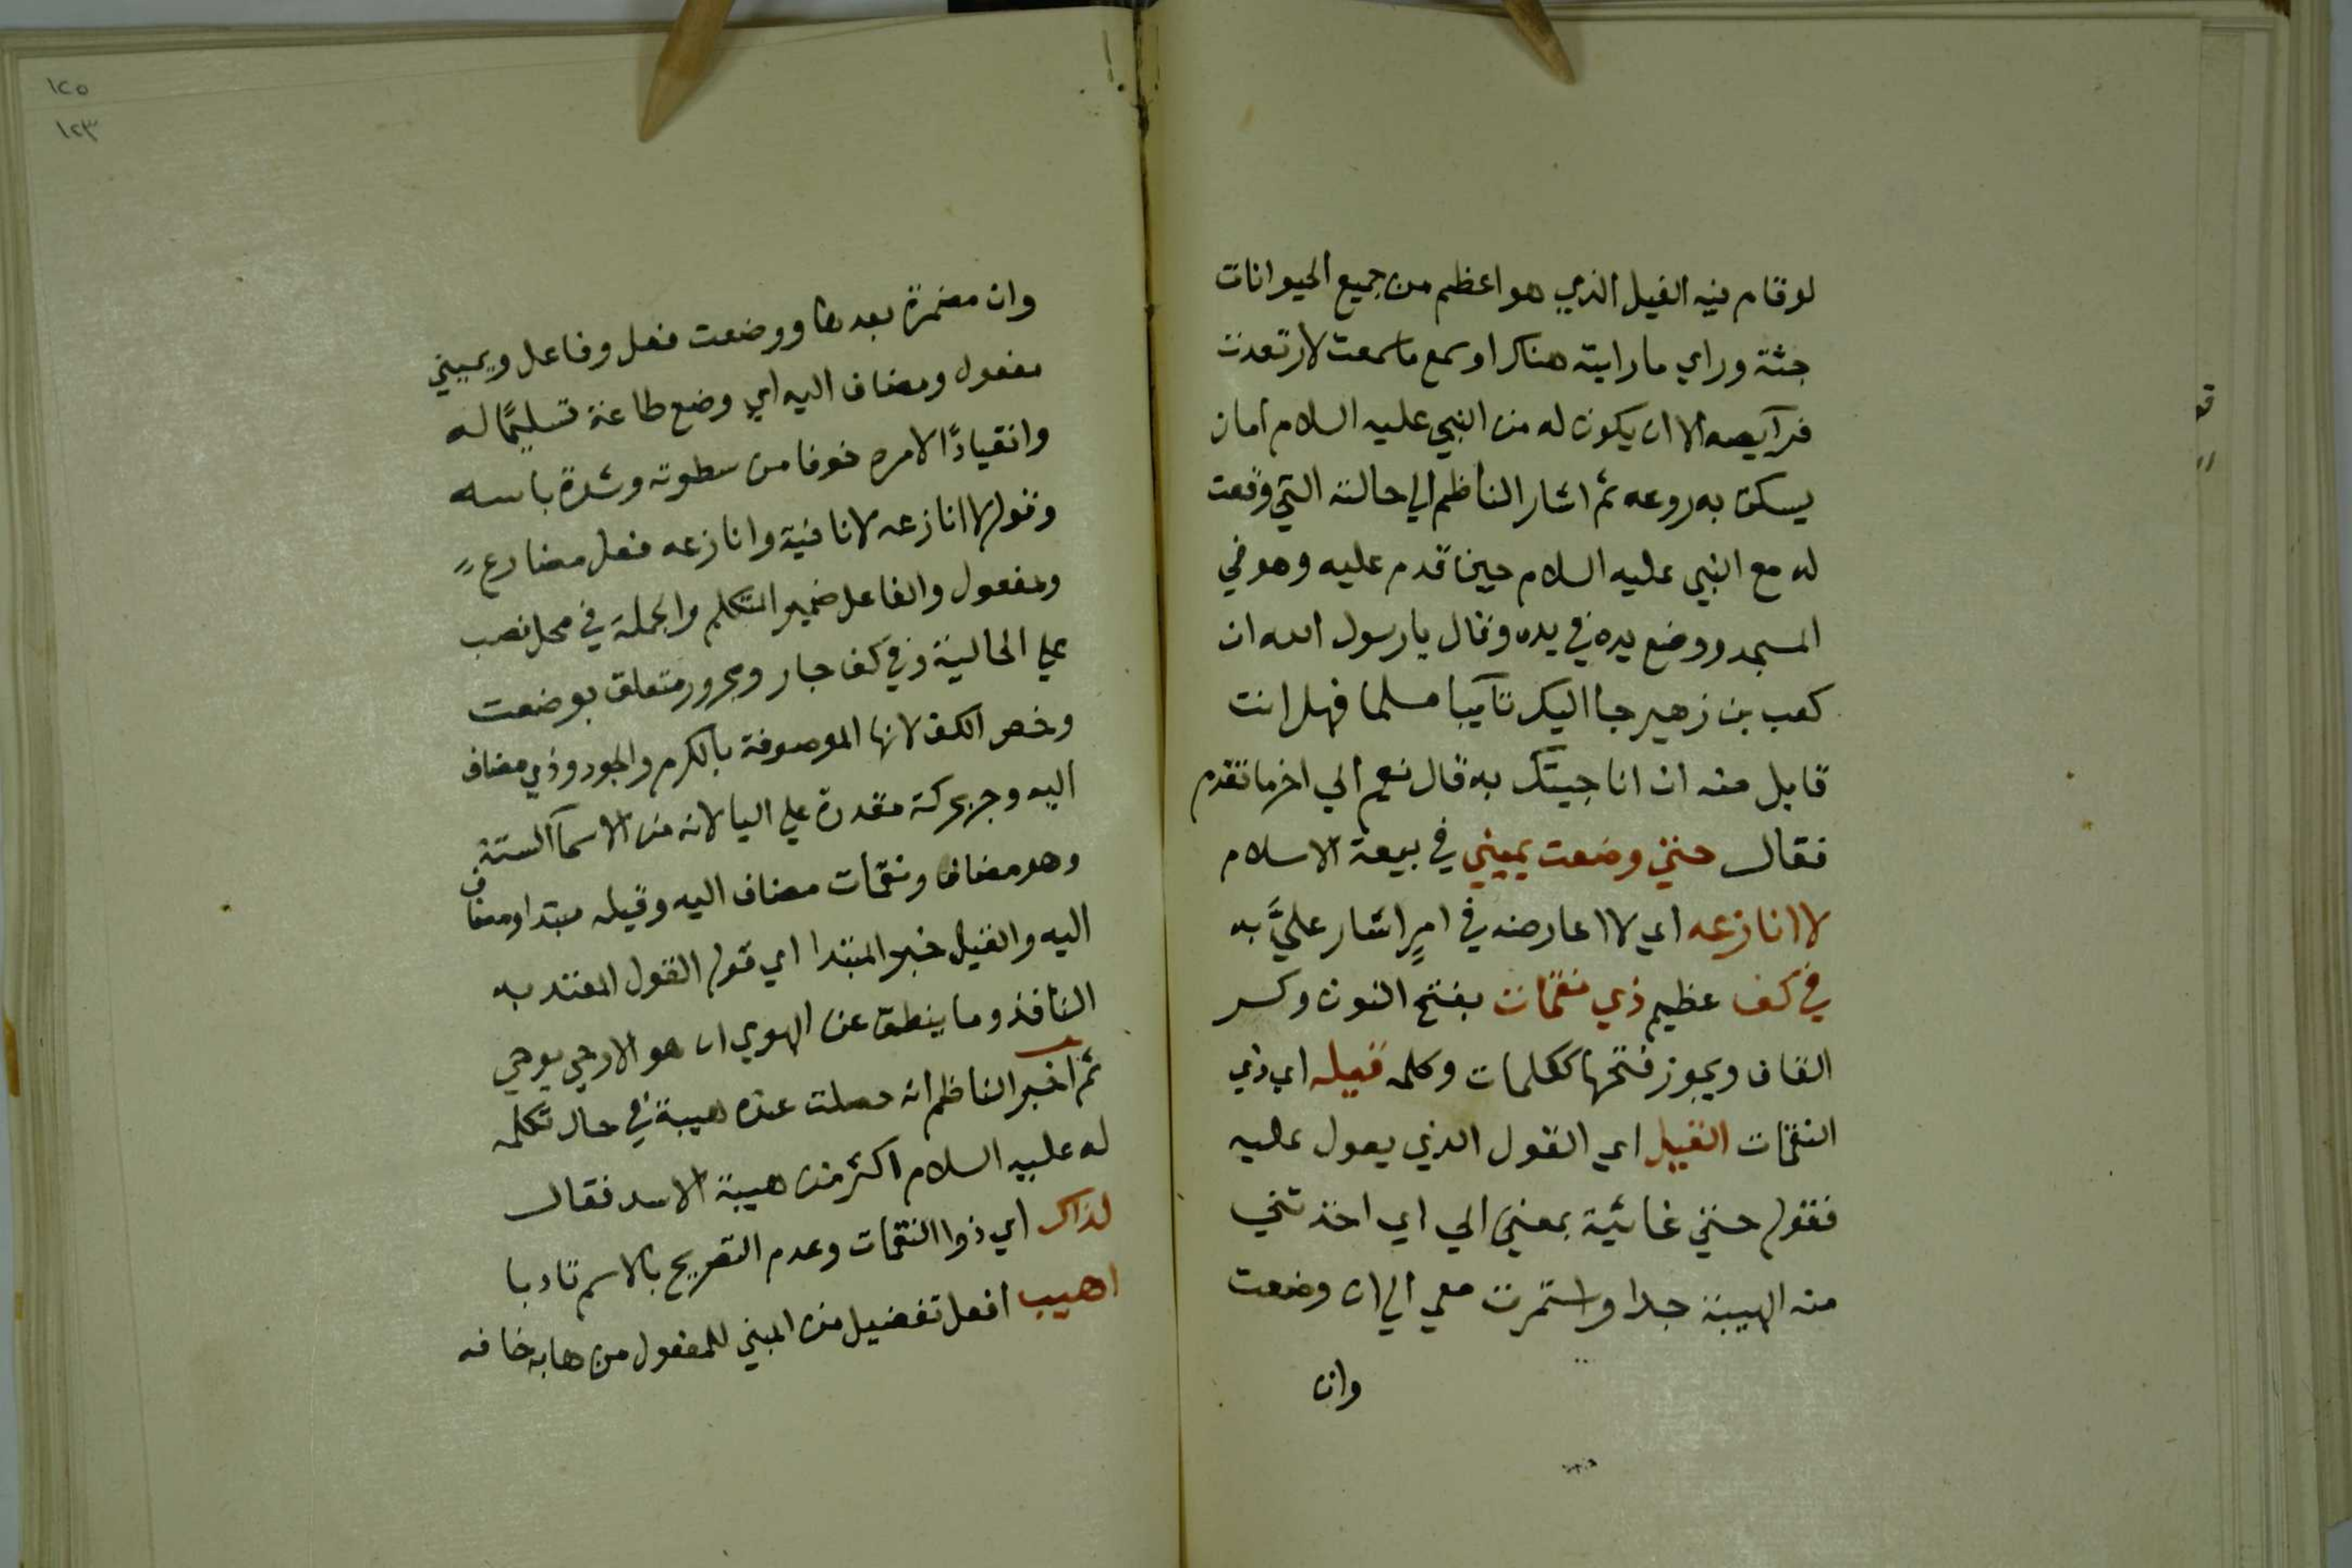 لو قام فيه الفيل الذي هو اعظم من جميع الحيوانات
جثة وراي ما رايته هناك او سمع ما سمعت لارتعدت
فرآيصه الا ان يكون له من النبي عليه السلام امان
يسكن به روعه ثم اشار الناظم الي حالته التي وقعت
له مع النبي عليه السلام حين قدم عليه وهو في
المسجد ووضع يده في يده وقال يا رسول الله ان
كعب بن زهير جا اليك تآيبا مسلما فهل انت
قابل منه ان انا جيتك به قال نعم الي اخر ما تقدم
فقال حتي وضعت يميني في بيعة الاسلام
لا انازعه اي لا اعارضه في امرٍ اشار عليَّ به
في كف عظيم ذي نقمات بفتح النون وكسر
القاف ويجوز فتحها ككلمات وكلمه قيله اي ذي
النقمات القيل اي القول الذي يعول عليه
فقوله حتي غائية بمعني الي اي اخذتني
منه الهيبة جدا واستمرت معي الي ان وضعت
وان
١٢٥
١٢٣
وان مضمرة بعدها ووضعت فعل وفاعل ويميني
مفعول ومضاف اليه اي وضع طاعة تسليمًا له
وانقيادًا لامره خوفا من سطوته وشدة باسه
وقوله لا انازعه لا نافية وانازعه فعل مضارع
ومفعول والفاعل ضمير المتكلم والجملة في محل نصب
علي الحالية وفي كف جار ومجرور متعلق بوضعت
وخص الكف لانها الموصوفة بالكرم والجود وذي مضاف
اليه وجر بحركة مقدرة علي اليا لانه من الاسمآ الستة
وهو مضاف ونقمات مضاف اليه وقيله مبتدا ومضاف
اليه والقيل خبر المبتدا اي قوله القول المعتد به
النافذ وما ينطق عن الهوي ان هو الا وحي يوحي
ثم اخبر الناظم انه حصلت عنده هيبة في حال تكلمه
له عليه السلام اكثر من هيبة الاسد فقال
لذاك اي ذوا النقمات وعدم التصريح بالاسم تادبا
اهيب افعل تفضيل من المبني للمفعول من هابه خافه